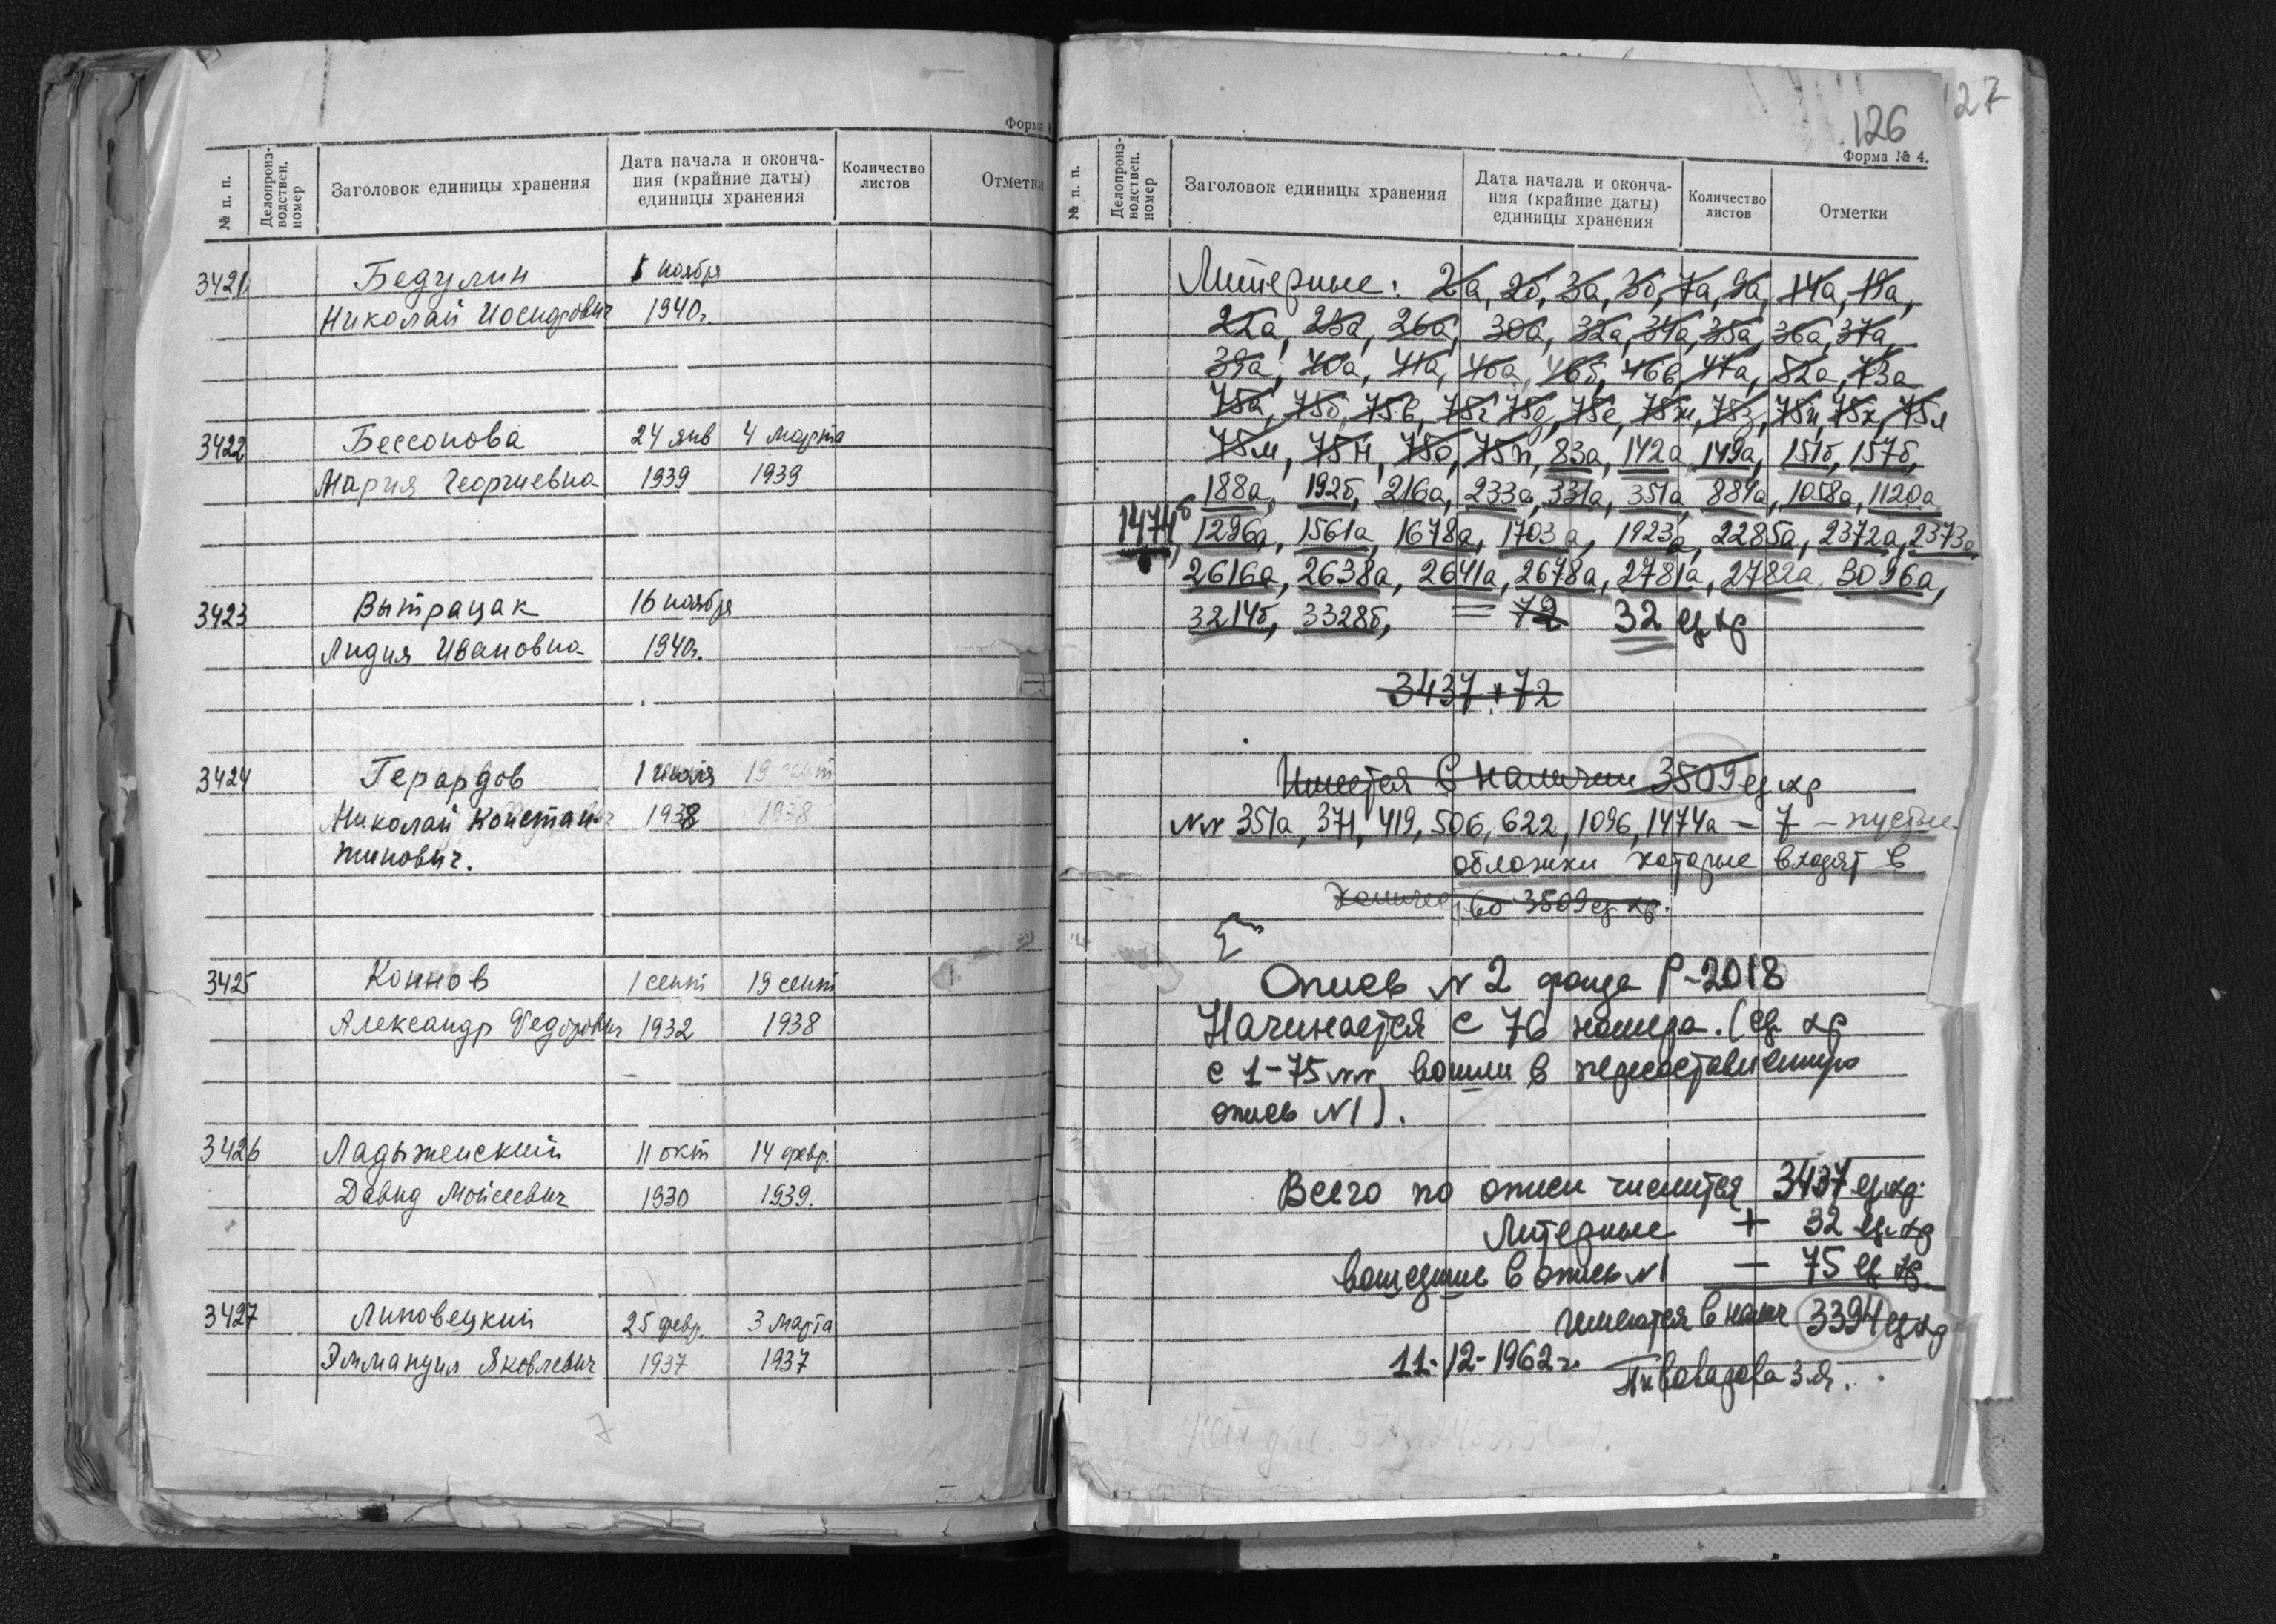 Форма
№ п. п.
Делопроиз-
водствен.
номер
Заголовок единицы хранения
Дата начала и оконча-
ния (крайние даты)
единицы хранения
Количество
листов
Отметки
3421 Бедулин 1 ноября
Николай Иосифович 1940г.
3422 Бессонова 24 янв 4 марта
Мария Георгиевна 1939 1939
3423 Вытрацак 16 ноября
Лидия Ивановна 1940г.
3424 Герардов 1 июля 19 сент
Николай Констан
тинович. 1938 1938
3425 Коннов 1 сент 19 сент
Александр Федорович 1932 1938
3426 Ладыженский 11 окт 14 февр.
Давид Моисеевич 1930 1939.
3427 Липовецкий 25 февр. 3 марта
Эммануил Яковлевич 1937 1937
7
127
126
Форма № 4.
№ п. п.
Делопроиз-
водствен.
номер
Заголовок единицы хранения
Дата начала и оконча-
ния (крайние даты)
единицы хранения
Количество
листов
Отметки
Литерные: 2а, 2б, 3а, 3б, 7а, 9а, 14а, 19а,
22а, 23а, 26а, 30а, 32а, 34а, 35а, 36а, 37а,
39а, 40а, 41а, 46а, 46б, 46в, 47а, 52а, 73а
75а, 75б, 75в, 75г, 75д, 75е, 75ж, 75з, 75и, 75к, 75л
75м, 75н, 75о, 75п, 83а, 142а, 149а, 151б, 157б,
188а, 192б, 216а, 233а, 331а, 351а, 884а, 1058а, 1120а
1474б, 1296а, 1561а, 1678а, 1703а, 1923а, 2285а, 2372а, 2373а
2616а, 2638а, 2641а, 2678а, 2781а, 2782а, 3096а,
3214б, 3328б, = 72 32 ед хр
3437 + 72
Имеется в наличии 3509 ед хр
NN 351а, 371, 419, 506, 622, 1096, 1474а – 7 – пустые
обложки которые входят в
количество 3509 ед хр.
Опись N 2 фонда Р-2018
Начинается с 76 номера. (ед хр
с 1-75 NN, вошли в пересоставленную
опись N1).
Всего по описи числится 3437 ед.хр.
Литерные + 32 ед.хр
вошедшие в опись N1 – 75 ед хр.
имеются в налич 3394 ед хр
11-12-1962г. Пивоварова З.Я.